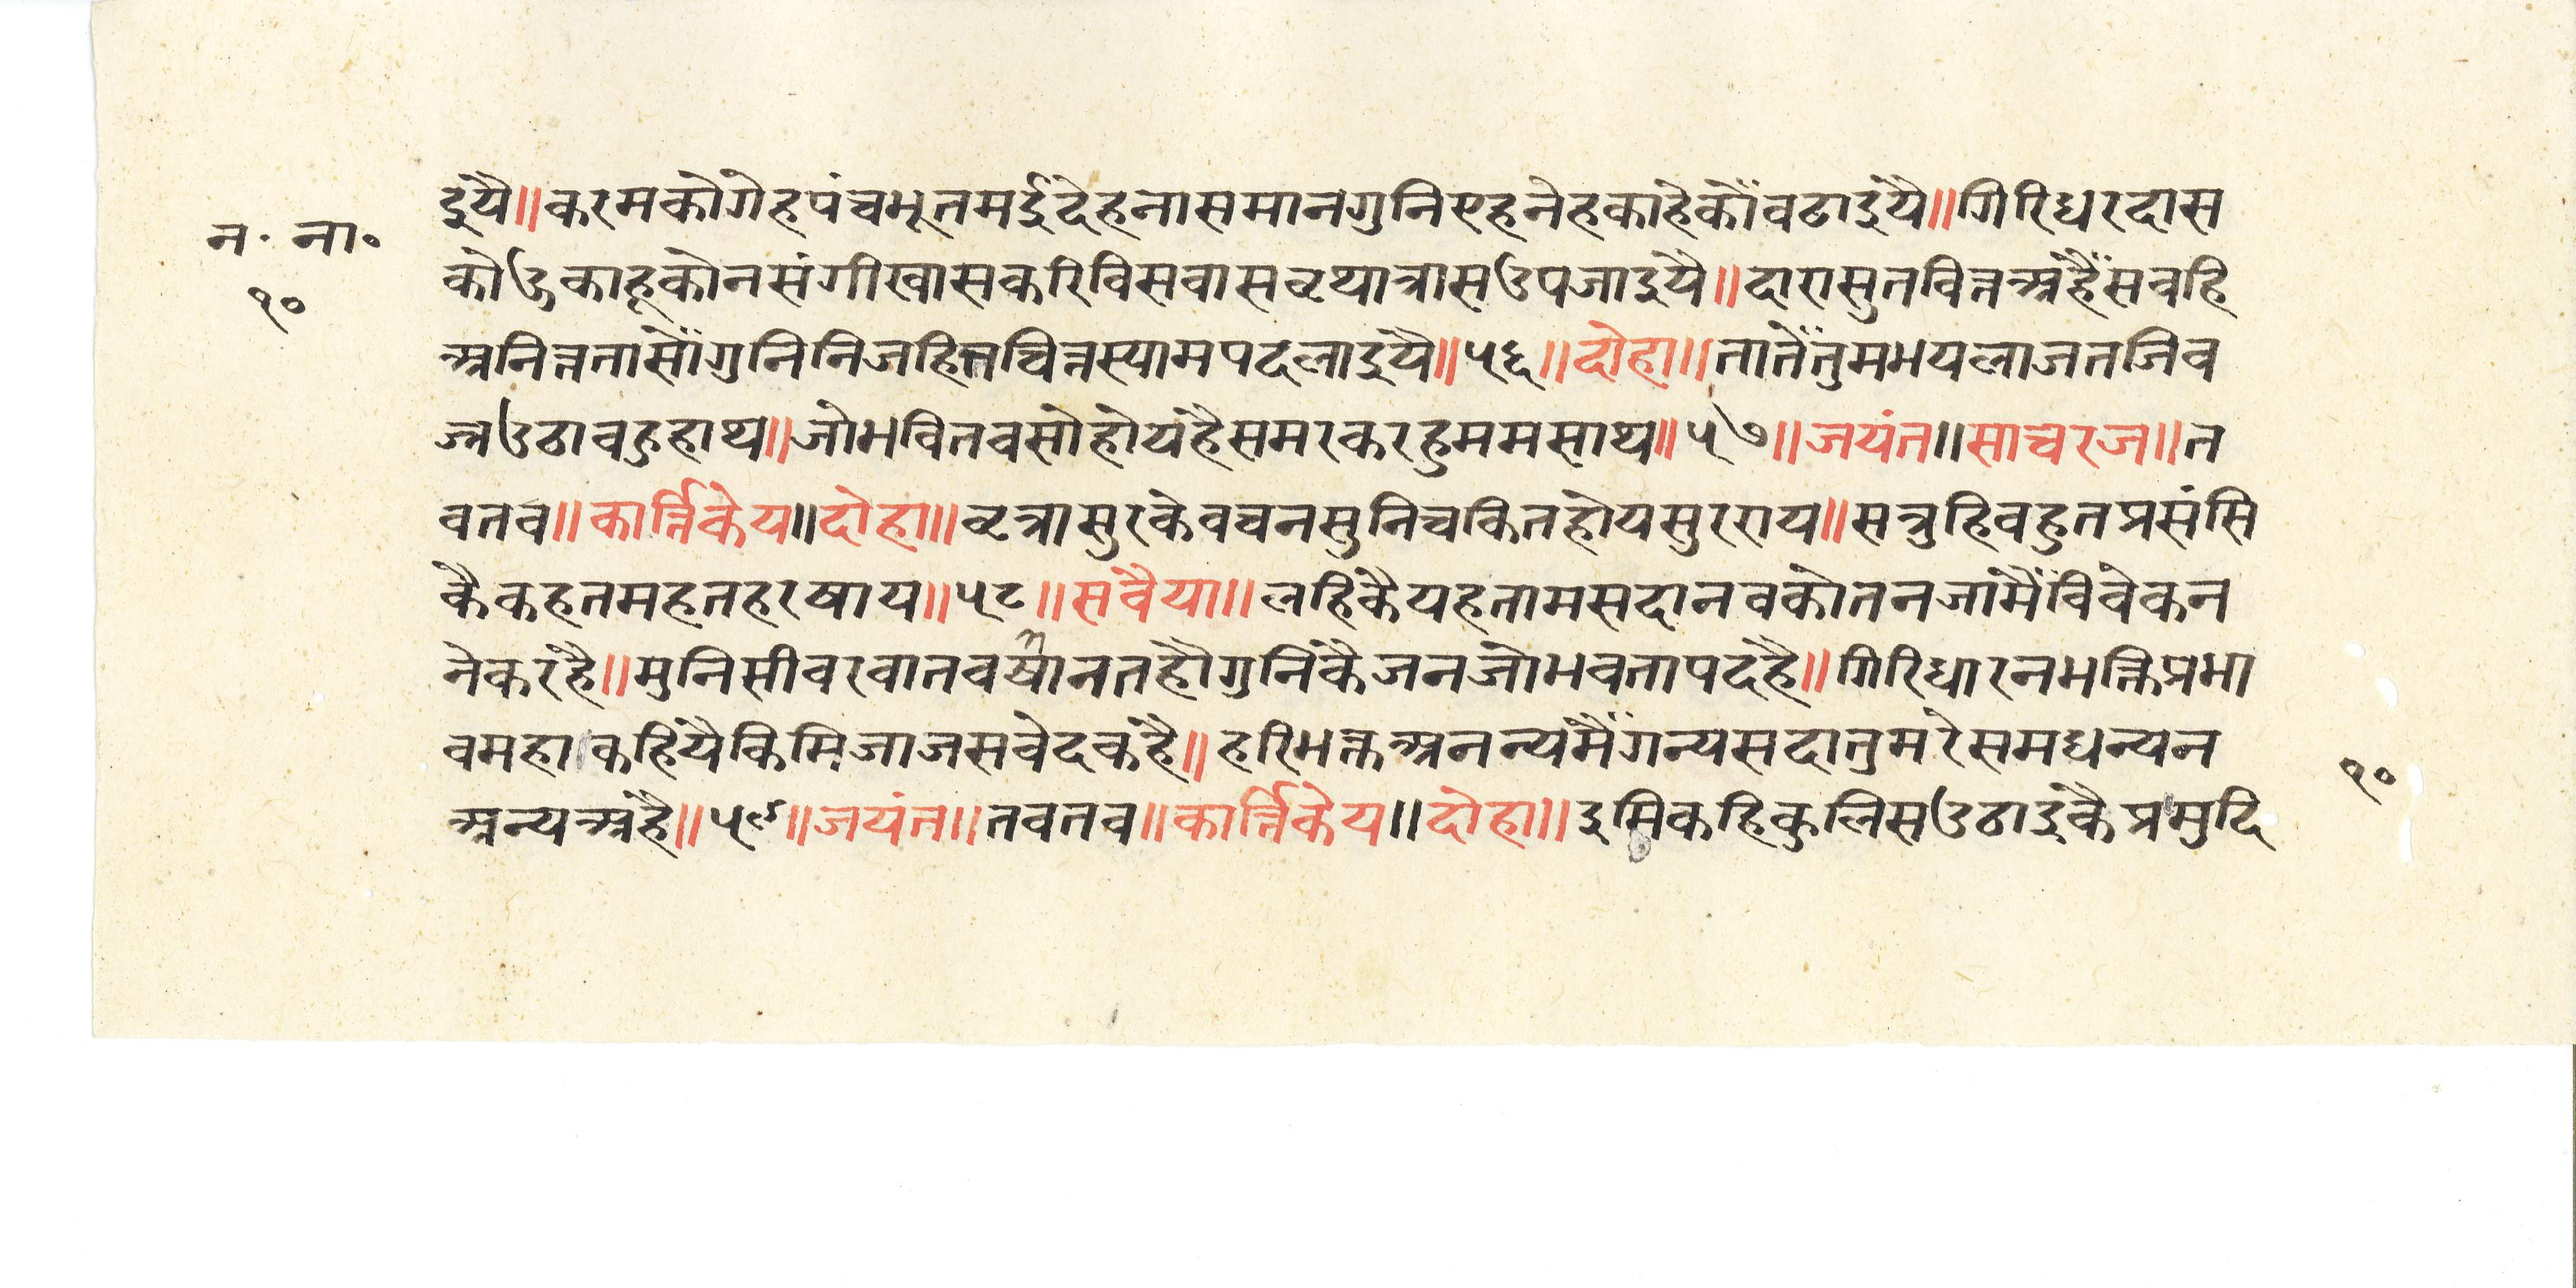 न॰ ना॰
१०
इयै॥करमकोगेहपंचभूतमईदेहनासमानगुनिएहनेहकाहेकौंवढाइयै॥गिरिधरदास
कोऊकाहूकोनसंगीखासकरिविसवासवृथात्रासउपजाइयै॥दारासुतवित्तअहैंसवहि
अनित्ततासौंगुनिनिजहितचित्तस्यामपदलाइयै॥५६॥दोहा॥तातेंतुमभयलाजतजिव
ज्रउठावहुहाथ॥जोभवितवसोहोयहैसमरकरहुममसाथ॥५७॥जयंत॥साचरज॥त
वतव॥कार्त्तिकेय॥दोहा॥वृत्रासुरकेवचनसुनिचकितहोयसुरराय॥सत्रुहिवहुतप्रसंसि
कैकहतमहतहरषाय॥५८॥सवैया॥लहिकैयहतामसदानवकोतनजामैंविवेकन
नेकरहै॥मुनिसीवरवातवषानतहौगुनिकैजनजोभवतापदहै॥गिरिधारनभक्तिप्रभा
वमहाकहियैकिमिजाजसवेदकहै॥हरिभक्तअनन्यमैंगन्यसदातुमरेसमधन्यन
अन्यअहै॥५९॥जयंत॥तवतव॥कार्त्तिकेय॥दोहा॥इमिकहिकुलिसउठाइकैप्रमुदि
१०